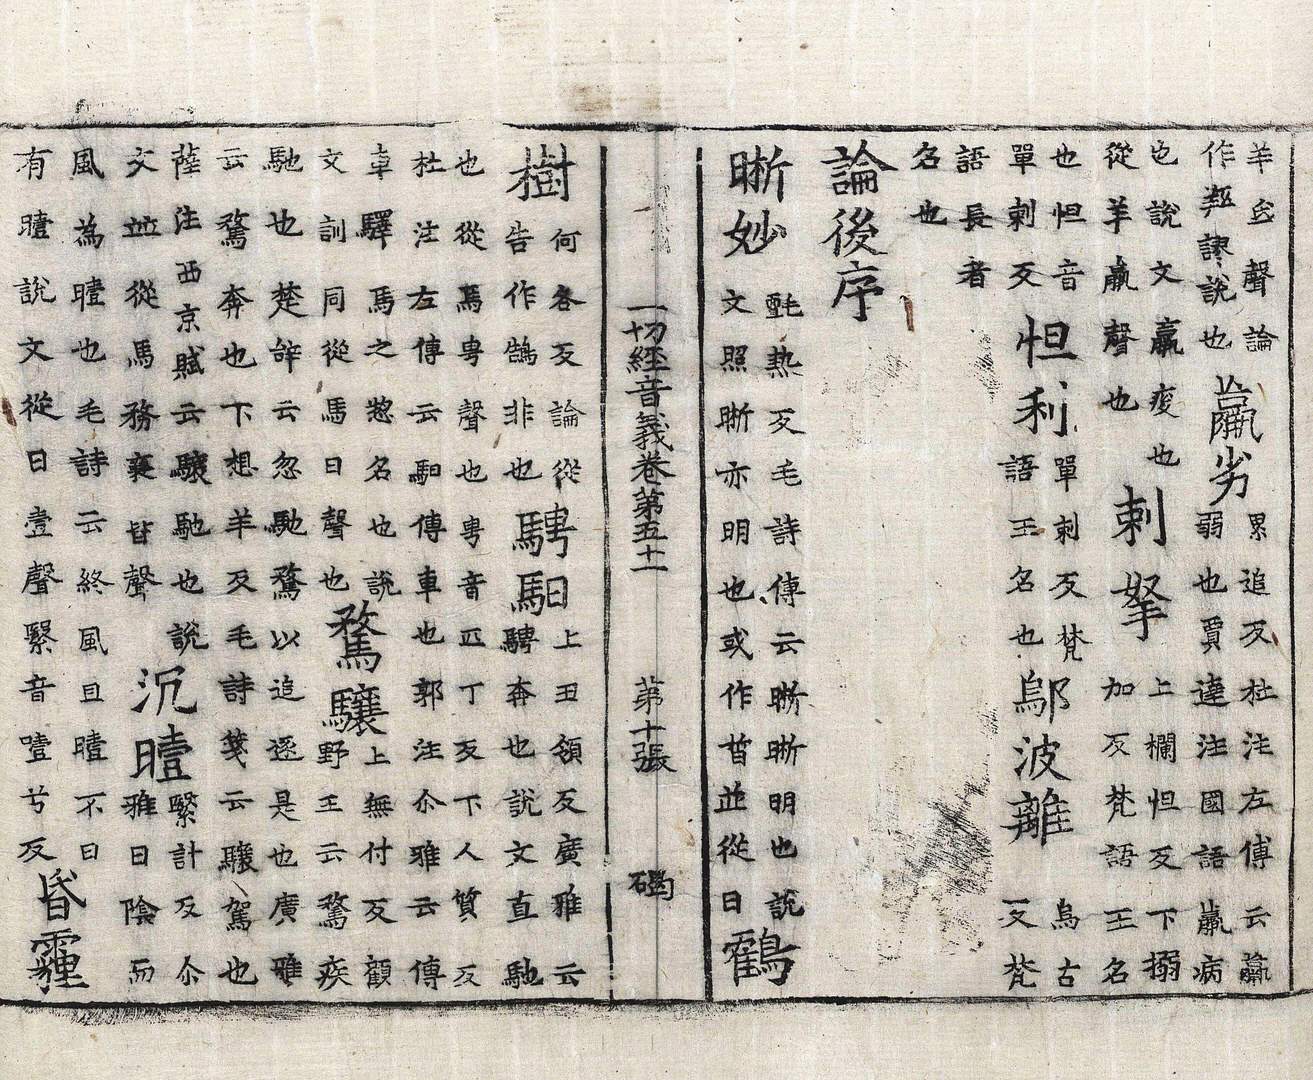 羊𦣝聲論
作羥謬說也
羸劣
累追反杜注左傳云羸
弱也賈逵注國語羸病
也說文羸瘦也
從羊𣎆聲也
刺拏
上欄怛反下搦
加反梵語王名
也怛音單刺反梵
單刺反
怛利
語王名也
鄔波離
烏古
反梵
語長者
名也
論後序
晰妙
氈熱反毛詩傳云晰晰明也說
文照晰亦明也或作晢並從日
鶴
樹
何各反論從
告作鵠非也
騁馹
上丑領反廣雅云
騁奔也說文直馳
也從馬甹聲也甹音匹丁反下人質反
杜注左傳云馹傳車也郭注尒雅云傳
車驛馬之惣名也說
文訓同從馬日聲也
騖驤
上無付反顧
野王云騖疾
馳也楚辝云忽馳騖以追逐是也廣雅
云騖奔也下想羊反毛詩箋云驤駕也
薩注西京賦云驤馳也說
文並從馬務襄皆聲
沉曀
緊計反尒
雅曰陰而
風為曀也毛詩云終風且曀不日
有曀說文從日壹聲緊音噎兮反
昏霾
一切經音義卷第五十一 第十張 碣